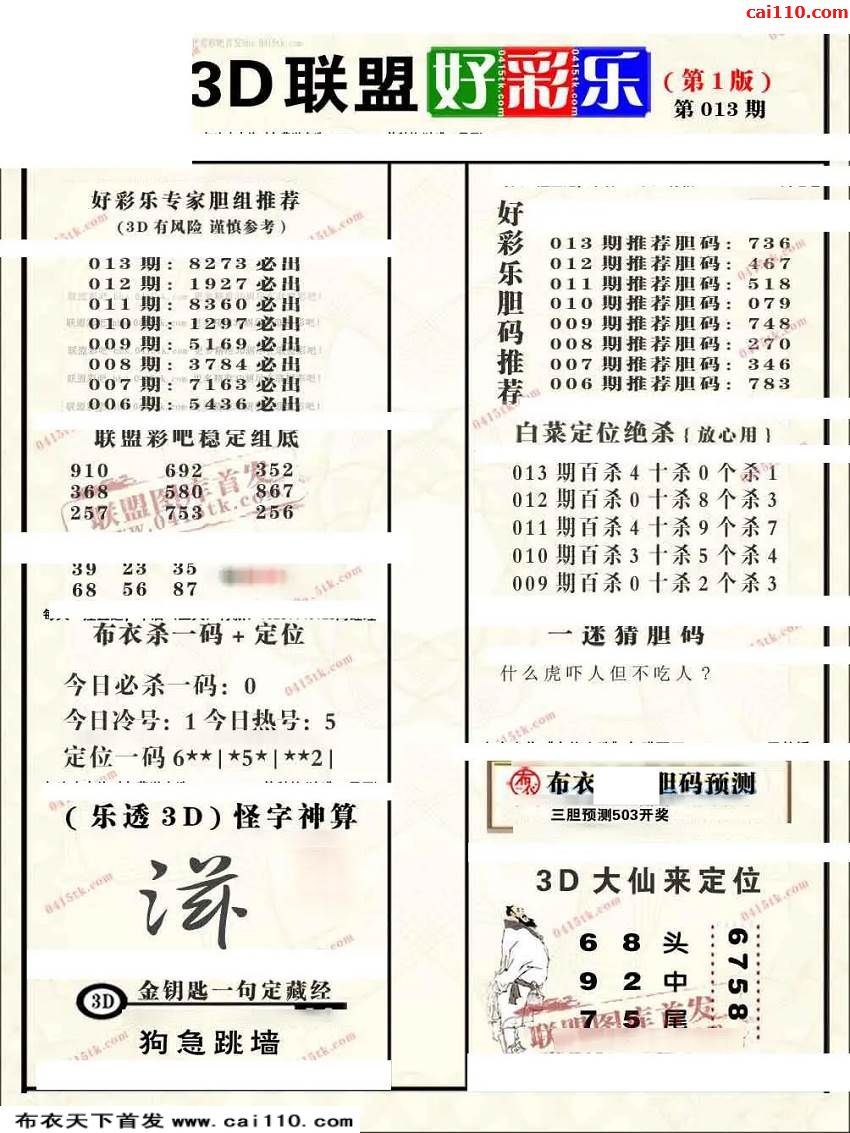 cai110.com
3D联盟好彩乐
(第1版)
第013期
好彩乐专家胆组推荐
(3D有风险 谨慎参考)
013期: 8273必出
012期: 1927必出
011期: 8360必出
010期: 1297必出
009期: 5169必出
008期: 3784必出
007期: 7163必出
006期: 5436必出
联盟彩吧稳定组底
910 692 352
368 580 867
257 753 256
39 23 35
68 56 87
布衣杀一码+定位
今日必杀一码: 0
今日冷号: 1 今日热号: 5
定位一码 6**|*5*|**2|
(乐透3D)怪字神算
3D 金钥匙一句定藏经
狗急跳墙
好彩乐胆码推荐
013期推荐胆码: 736
012期推荐胆码: 467
011期推荐胆码: 518
010期推荐胆码: 079
009期推荐胆码: 748
008期推荐胆码: 270
007期推荐胆码: 346
006期推荐胆码: 783
白菜定位绝杀{放心用}
013期百杀4十杀0个杀1
012期百杀0十杀8个杀3
011期百杀4十杀9个杀7
010期百杀3十杀5个杀4
009期百杀0十杀2个杀3
一迷猜胆码
什么虎吓人但不吃人?
布衣 胆码预测
三胆预测503开奖
3D大仙来定位
6 8 头
9 2 中
7 5 尾
6758
联盟图库首发
www.0415tk.com
联盟图库首发
0415tk.com
布衣天下首发 www.cai110.com